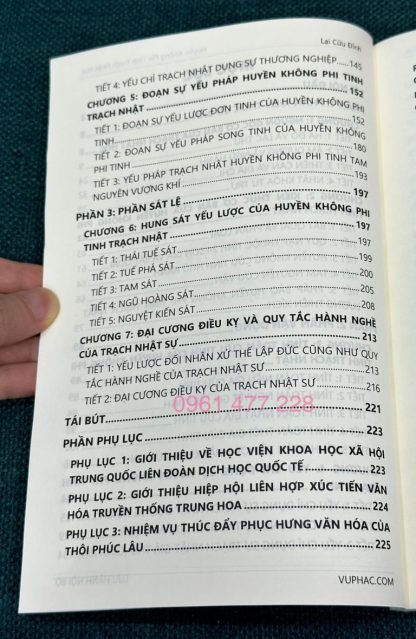 Lại Cửu Đỉnh
TIẾT 4: YẾU CHỈ TRẠCH NHẬT DỤNG SỰ THƯƠNG NGHIỆP.....145
CHƯƠNG 5: ĐOẠN SỰ YẾU PHÁP HUYỀN KHÔNG PHI TINH
TRẠCH NHẬT.....152
TIẾT 1: ĐOẠN SỰ YẾU LƯỢC ĐƠN TINH CỦA HUYỀN KHÔNG PHI
TINH.....152
TIẾT 2: ĐOẠN SỰ YẾU PHÁP SONG TINH CỦA HUYỀN KHÔNG
PHI TINH.....180
TIẾT 3: YẾU PHÁP TRẠCH NHẬT HUYỀN KHÔNG PHI TINH TAM
NGUYÊN VƯỢNG KHÍ.....193
PHẦN 3: PHẦN SÁT LỆ.....197
CHƯƠNG 6: HUNG SÁT YẾU LƯỢC CỦA HUYỀN KHÔNG PHI
TINH TRẠCH NHẬT.....197
TIẾT 1: THÁI TUẾ SÁT.....197
TIẾT 2: TUẾ PHÁ SÁT.....199
TIẾT 3: TAM SÁT.....200
TIẾT 4: NGŨ HOÀNG SÁT.....205
TIẾT 5: NGUYỆT KIẾN SÁT.....208
CHƯƠNG 7: ĐẠI CƯƠNG ĐIỀU KỴ VÀ QUY TẮC HÀNH NGHỀ
CỦA TRẠCH NHẬT SƯ.....213
TIẾT 1: YẾU LƯỢC ĐỐI NHÂN XỬ THẾ LẬP ĐỨC CŨNG NHƯ QUY
TẮC HÀNH NGHỀ CỦA TRẠCH NHẬT SƯ.....213
TIẾT 2: ĐẠI CƯƠNG ĐIỀU KỴ CỦA TRẠCH NHẬT SƯ.....216
0961 477 228
TÁI BÚT.....221
PHẦN PHỤ LỤC.....223
PHỤ LỤC 1: GIỚI THIỆU VỀ HỌC VIỆN KHOA HỌC XÃ HỘI
TRUNG QUỐC LIÊN ĐOÀN DỊCH HỌC QUỐC TẾ.....223
PHỤ LỤC 2: GIỚI THIỆU HIỆP HỘI LIÊN HỢP XÚC TIẾN VĂN
HÓA TRUYỀN THỐNG TRUNG HOA.....224
PHỤ LỤC 3: NHIỆM VỤ THÚC ĐẨY PHỤC HƯNG VĂN HÓA CỦA
THÔI PHÚC LÂU.....225
VUPHAC.COM